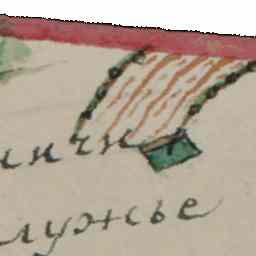 ничи
лужье